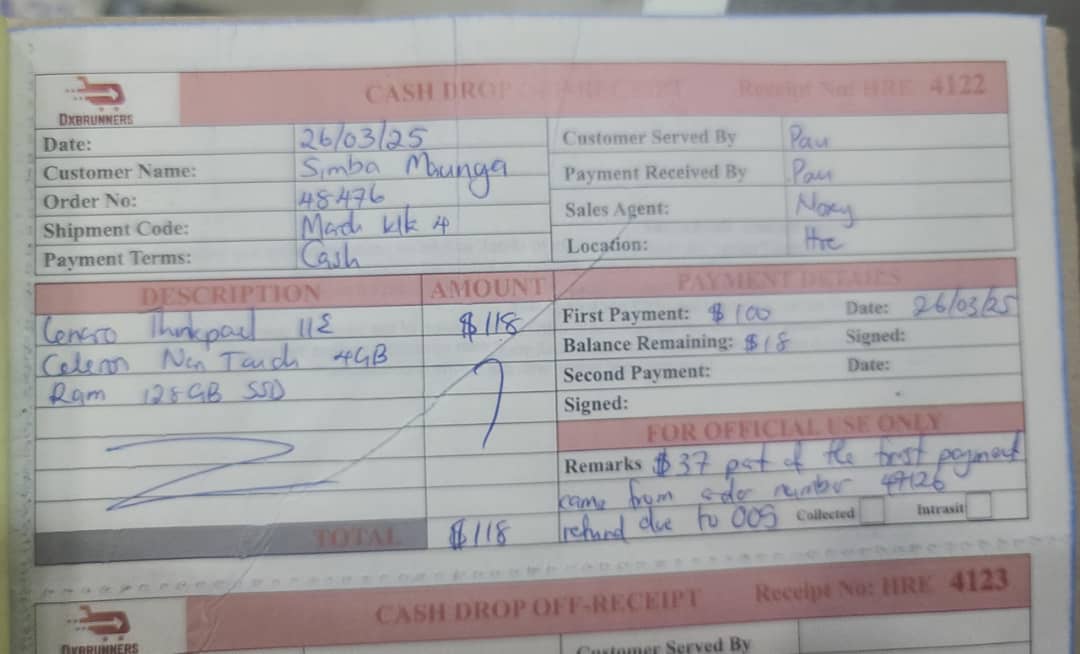 CASH DROP OFF-RECEIPT Receipt No: HRE 4122
DXBRUNNERS
Date: 26/03/25
Customer Name: Simba Mbunga
Order No: 48476
Shipment Code: March Wk 4
Payment Terms: Cash
Customer Served By Pau
Payment Received By Pau
Sales Agent: Noxy
Location: Hre
DESCRIPTION AMOUNT
Lenovo Thinkpad 11E $118
Celeron Non Touch 4GB
Ram 128GB SSD
TOTAL $118
PAYMENT DETAILS
First Payment: $100 Date: 26/03/25
Balance Remaining: $18 Signed:
Second Payment: Date:
Signed:
FOR OFFICIAL USE ONLY
Remarks $37 part of the first payment
came from order number 47126
refund due to OOS Collected Intrasit
CASH DROP OFF-RECEIPT Receipt No: HRE 4123
DXBRUNNERS
Customer Served By